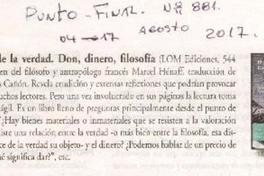 PUNTO - FINAL. Nº 881.
04 - 17 AGOSTO 2017.
de la verdad. Don, dinero, filosofía (LOM Ediciones, 544
en del filósofo y antropólogo francés Marcel Hénaff, traducción de
Cañón. Revela erudición y extensas reflexiones que podrían provocar
uchos lectores. Pero una vez involucrado en sus páginas la lectura torna
ágil. Es un libro lleno de preguntas principalmente desde el punto de
¿Hay bienes materiales o inmateriales que se resisten a la valoración
iste una relación entre la verdad -o más bien entre la filosofía, esa dis-
ce de la verdad su objeto- y el dinero? ¿Podemos hablar de un precio de
é significa dar?", etc.